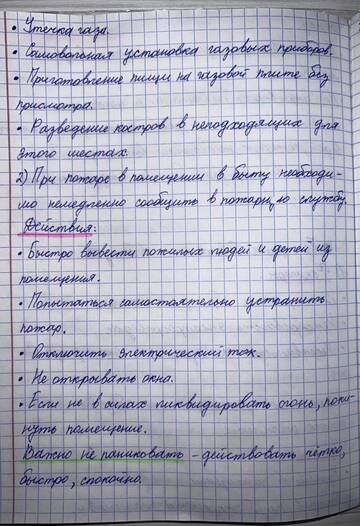 • Утечка газа.
• Самовольная установка газовых приборов.
• Приготовление пищи на газовой плите без
присмотра.
• Разведение костров в неподходящих для
этого местах.
2) При пожаре в помещении в быту необходи-
мо немедленно сообщить в пожарную службу.
Действия:
• Быстро вывести пожилых людей и детей из
помещения.
• Попытаться самостоятельно устранить
пожар.
• Отключить электрический ток.
• Не открывать окна.
• Если не в силах ликвидировать огонь, поки-
нуть помещение.
Важно не паниковать - действовать чётко,
быстро, спокойно.